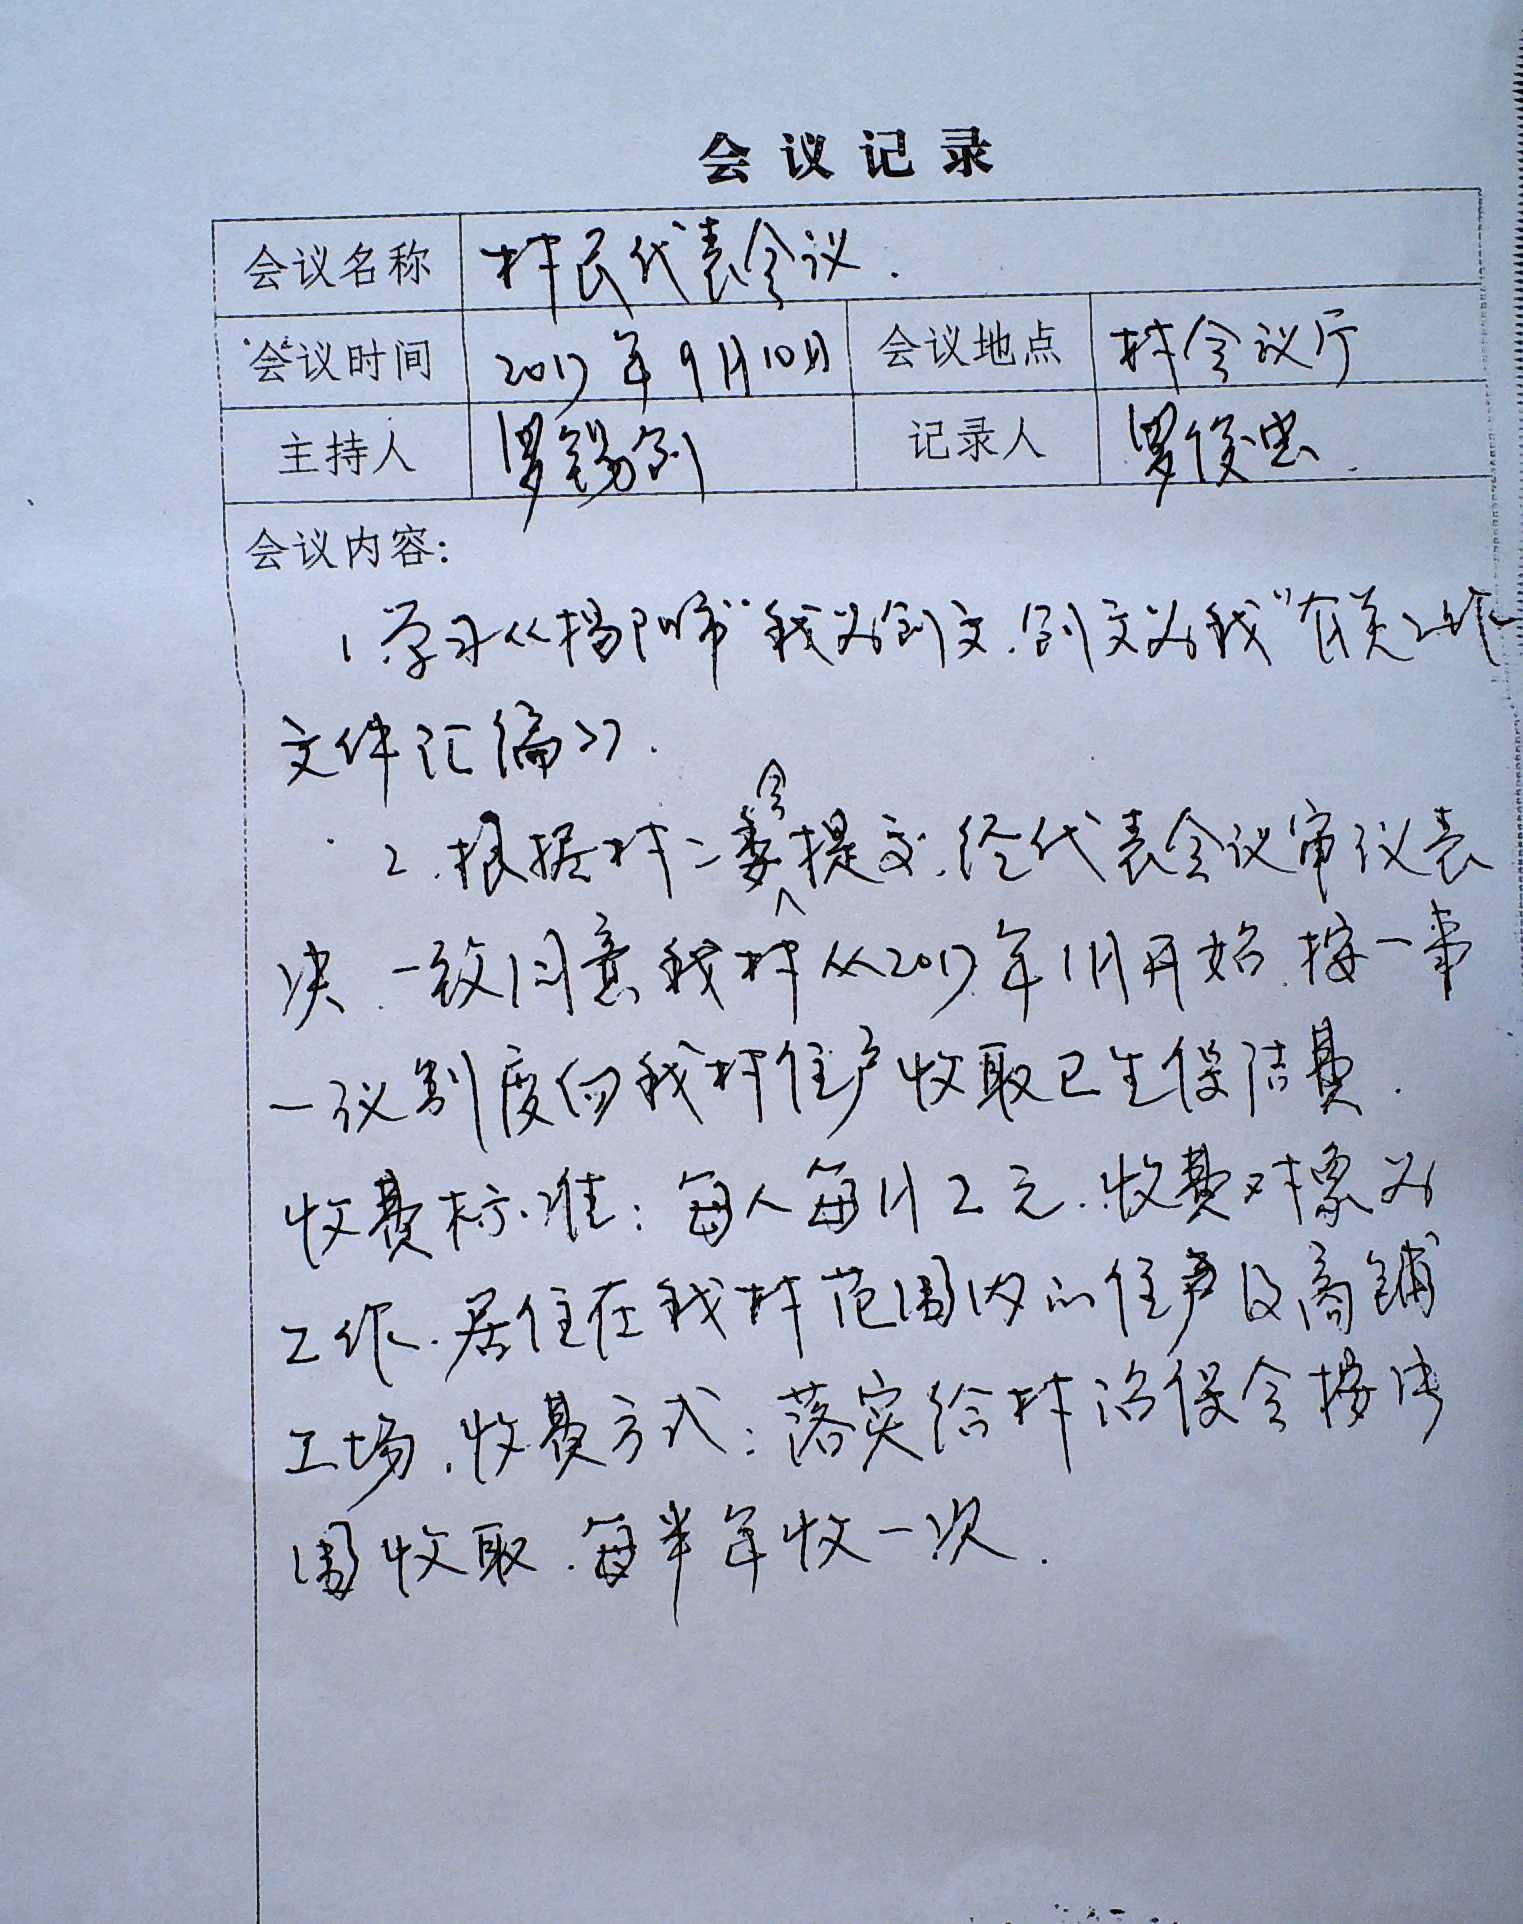 会议记录
会议名称 村民代表会议.
会议时间 2017年9月10日 会议地点 村会议厅
主持人 罗锡 记录人 罗俊忠.
会议内容:
1 学习《揭阳市"我为创文.创文为我"有关工作
文件汇编》.
2.根据村二委会提交.经代表会议审议表
决.一致同意我村从2017年1月开始.按一事
一议制度向我村住户收取卫生保洁费.
收费标准:每人每月2元.收费对象为
工作.居住在我村范围内的住户及商铺
工场.收费方式:落实给村治保会按
围收取.每半年收一次.